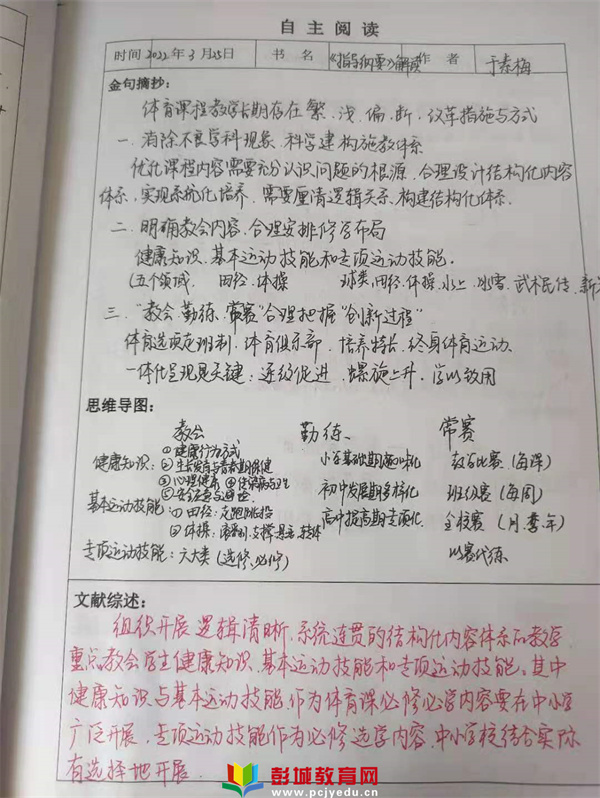 自主阅读
时间 2022年3月25日 书名 《指导纲要》解读 作者 于素梅
金句摘抄:
体育课程教学长期存在繁、浅、偏、断,改革措施与方式
一、消除不良学科现象、科学建构施教体系
优化课程内容需要充分认识问题的根源、合理设计结构化内容
体系,实现系统化培养、需要厘清逻辑关系、构建结构化体系.
二、明确教会内容、合理安排修学布局
健康知识、基本运动技能和专项运动技能.
(五个领域. 田径、体操 球类、田径、体操、水上、冰雪、武术民传、新兴
三、"教会、勤练、常赛"合理把握"创新过程"
体育选项走班制、体育俱乐部、培养特长、终身体育运动、
一体化呈现是关键:逐级促进、螺旋上升、学以致用
思维导图:
教会 勤练、 常赛
①健康行为方式
健康知识:②生长发育与青春期保健 小学基础期趣味化 教学比赛(每课)
③心理健康
④安全应急与避险 初中发展期多样化 班级赛(每周)
基本运动技能:①田径:走跑跳投 高中提高期专项化 全校赛(月、季、年)
②体操:
专项运动技能:六大类(选修、必修) 以赛代练
文献综述:
组织开展逻辑清晰、系统连贯的结构化内容体系的教学
重点教会学生健康知识、基本运动技能和专项运动技能、其中
健康知识与基本运动技能作为体育课必修必学内容要在中小学
广泛开展、专项运动技能作为必修选学内容、中小学校结合实际
有选择地开展.
彭城教育网
www.pcjyedu.cn